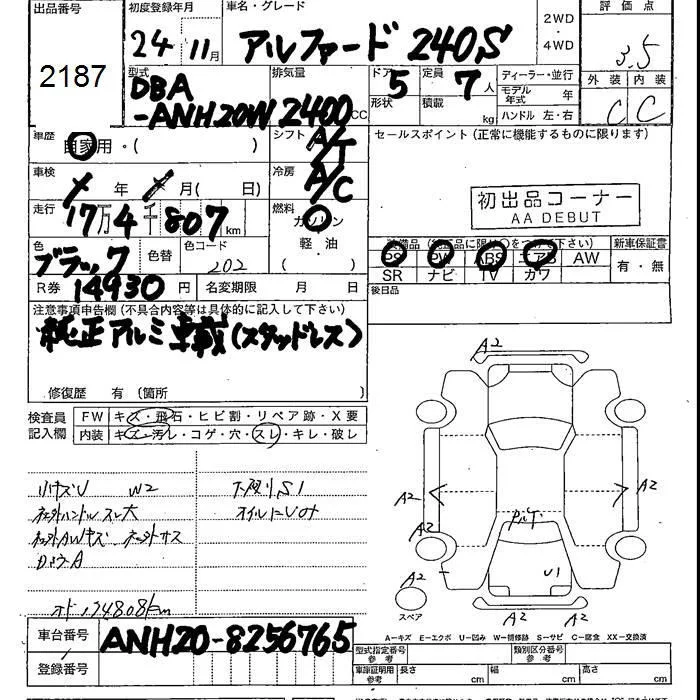 出品番号
2187
初度登録年月
24年 11月
車名・グレード
アルファード 240S
2WD
・
4WD
評価点
3.5
外装 内装
C C
型式
DBA
-ANH20W
排気量
2400 CC
ドア 5
形状
定員 7人
積載 kg
ディーラー・並行
モデル年式 年
ハンドル 左・右
車歴
自家用・( )
シフト
A/T
車検
/ 年 / 月( 日)
冷房
A/C
走行
17万4千807km
燃料
ガソリン
軽・油
( )
色
ブラック
色替
色コード
202
R券 14930 円 名変期限 月 日
セールスポイント (正常に機能するものに限ります)
初出品コーナー
AA DEBUT
装備品 (純正品に限り○をつけて下さい)
新車保証書
PS PW ABS エアB AW
SR ナビ TV カワ
有・無
後日品
注意事項申告欄 (不具合内容等は具体的に記入して下さい)
純正アルミ車載(スタッドレス)
修復歴 有 (箇所 )
検査員
記入欄
FW キズ・飛石・ヒビ割・リペア跡・X要
内装 キズ・汚レ・コゲ・穴・スレ・キレ・破レ
小キズU W2
下廻りS1
ハンドルスレ大
オイルにじみ
AWキズ
オド174808km
A2
A2
A2
A2
A2
A2
A2
U1
スペア
A-キズ E-エクボ U-凹み W-補修跡 S-サビ C-腐食 XX-交換済
車台番号 ANH20-8256765
登録番号
型式指定番号
参考
類別区分番号
参考
長さ cm 幅 cm 高さ cm